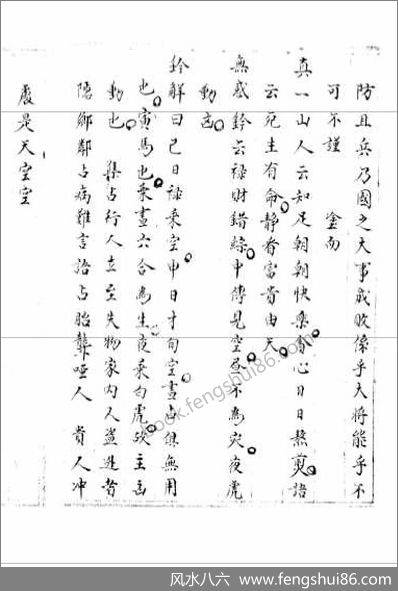 防且兵乃國之大事成敗係乎大將能乎不
可不謹 金南
真一山人云知足朝朝快樂貪心日日熬煎語
云死生有命靜看富貴由天
無惑鈴云祿財錯綜中傳見空晝不為災夜虎
動凶
鈴解曰已日祿乘空申日才旬空晝占俱無用
也寅馬也乘晝六合為生夜乘白虎改主凶
動也 集占行人立至失物家內人盜逃者
隱鄉鄰占病難言語占胎聾啞人 貴人冲
處是天空空
book.fengshui86.com
风水八六 | www.fengshui86.com